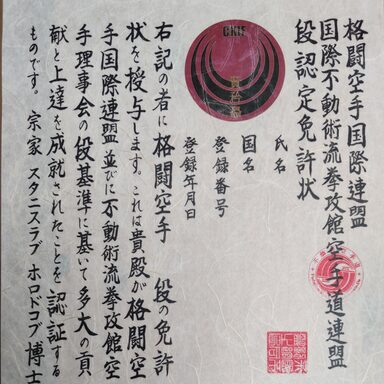 格闘空手国際連盟
国際不動術流拳攻館空手道連盟
段認定免許状
氏名
国名
登録番号
登録年月日
右記の者に格闘空手 段の免許
状を授与します。これは貴殿が格闘空
手国際連盟並びに不動術流拳攻館空
手理事会の段基準に基いて多大の貢
献と上達を成就されたことを認証する
ものです。 宗家 スタニスラブ ホロドコブ博士
CKIF